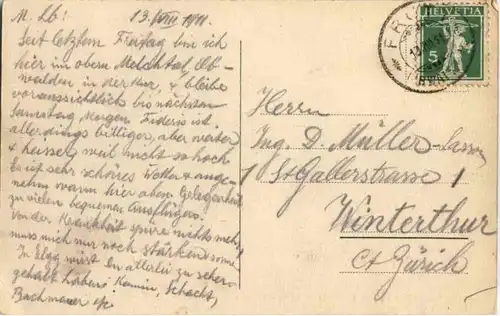 M. Lb: 13. VIII 1911.
Seit letztem Freitag bin ich
hier im obern Melchtal, Ob-
walden in der Kur, & bleibe
voraussichtlich bis nächsten
Samstag, Morgen. Fideris ist
allerdings billiger, aber weiter
& heisser, weil nicht so hoch
Es ist sehr schönes Wetter & ange-
nehm warm hier oben. Gelegenheit
zu vielen bequemen Ausflügen.
Von der Krankheit spüre nichts mehr
muss mich nur noch stärken
In Elgg wirst Du allerlei zu sehen
gehabt haben: Kamin, Schacht,
Bachmauer
HELVETIA
5
Herrn
Ing. D. Müller-
St Gallerstrasse 1
Winterthur
Ct Zürich